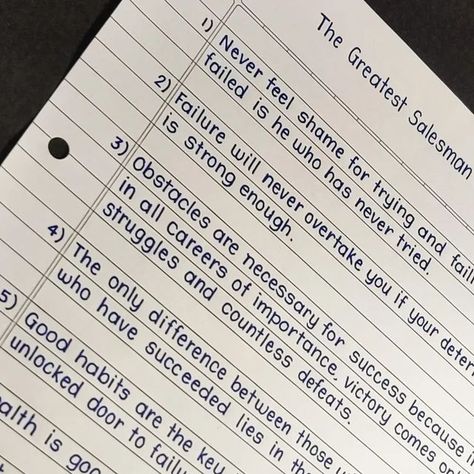 The Greatest Salesman
1) Never feel shame for trying and
failed is he who has never tried.
2) Failure will never overtake you if your
is strong enough.
3) Obstacles are necessary for success because
in all careers of importance, victory comes
struggles and countless defeats.
4) The only difference between those
who have succeeded lies in
5) Good habits are the key
unlocked door to
is